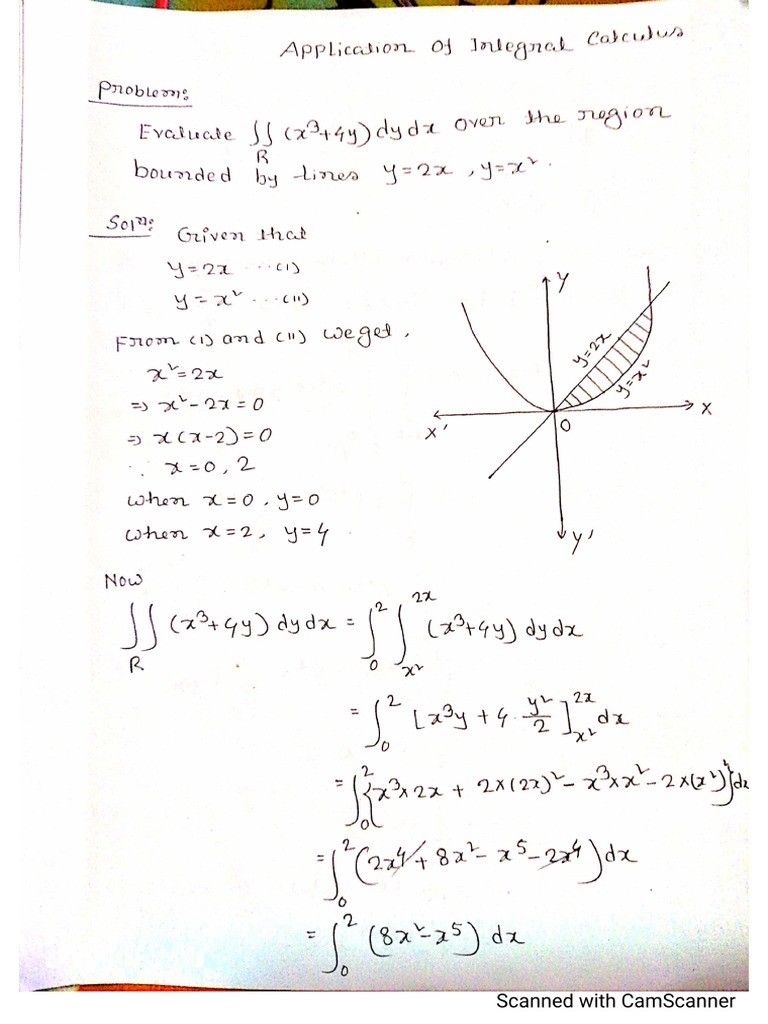 Application Of Integral Calculus
Problem:
Evaluate ∬_R (x³+4y) dy dx over the region
bounded by lines y=2x, y=x².
Solⁿ: Given that
y=2x ...(i)
y=x² ...(ii)
From (i) and (ii) we get,
x²=2x
⇒ x²-2x=0
⇒ x(x-2)=0
∵ x=0, 2
when x=0, y=0
when x=2, y=4
Y
y=2x
y=x²
X' O X
Y'
Now
∬_R (x³+4y) dy dx = ∫_0^2 ∫_{x²}^{2x} (x³+4y) dy dx
= ∫_0^2 [x³y + 4·y²/2]_{x²}^{2x} dx
= ∫_0^2 {x³×2x + 2×(2x)² - x³×x² - 2×(x²)²} dx
= ∫_0^2 (2x⁴ + 8x² - x⁵ - 2x⁴) dx
= ∫_0^2 (8x²-x⁵) dx
Scanned with CamScanner